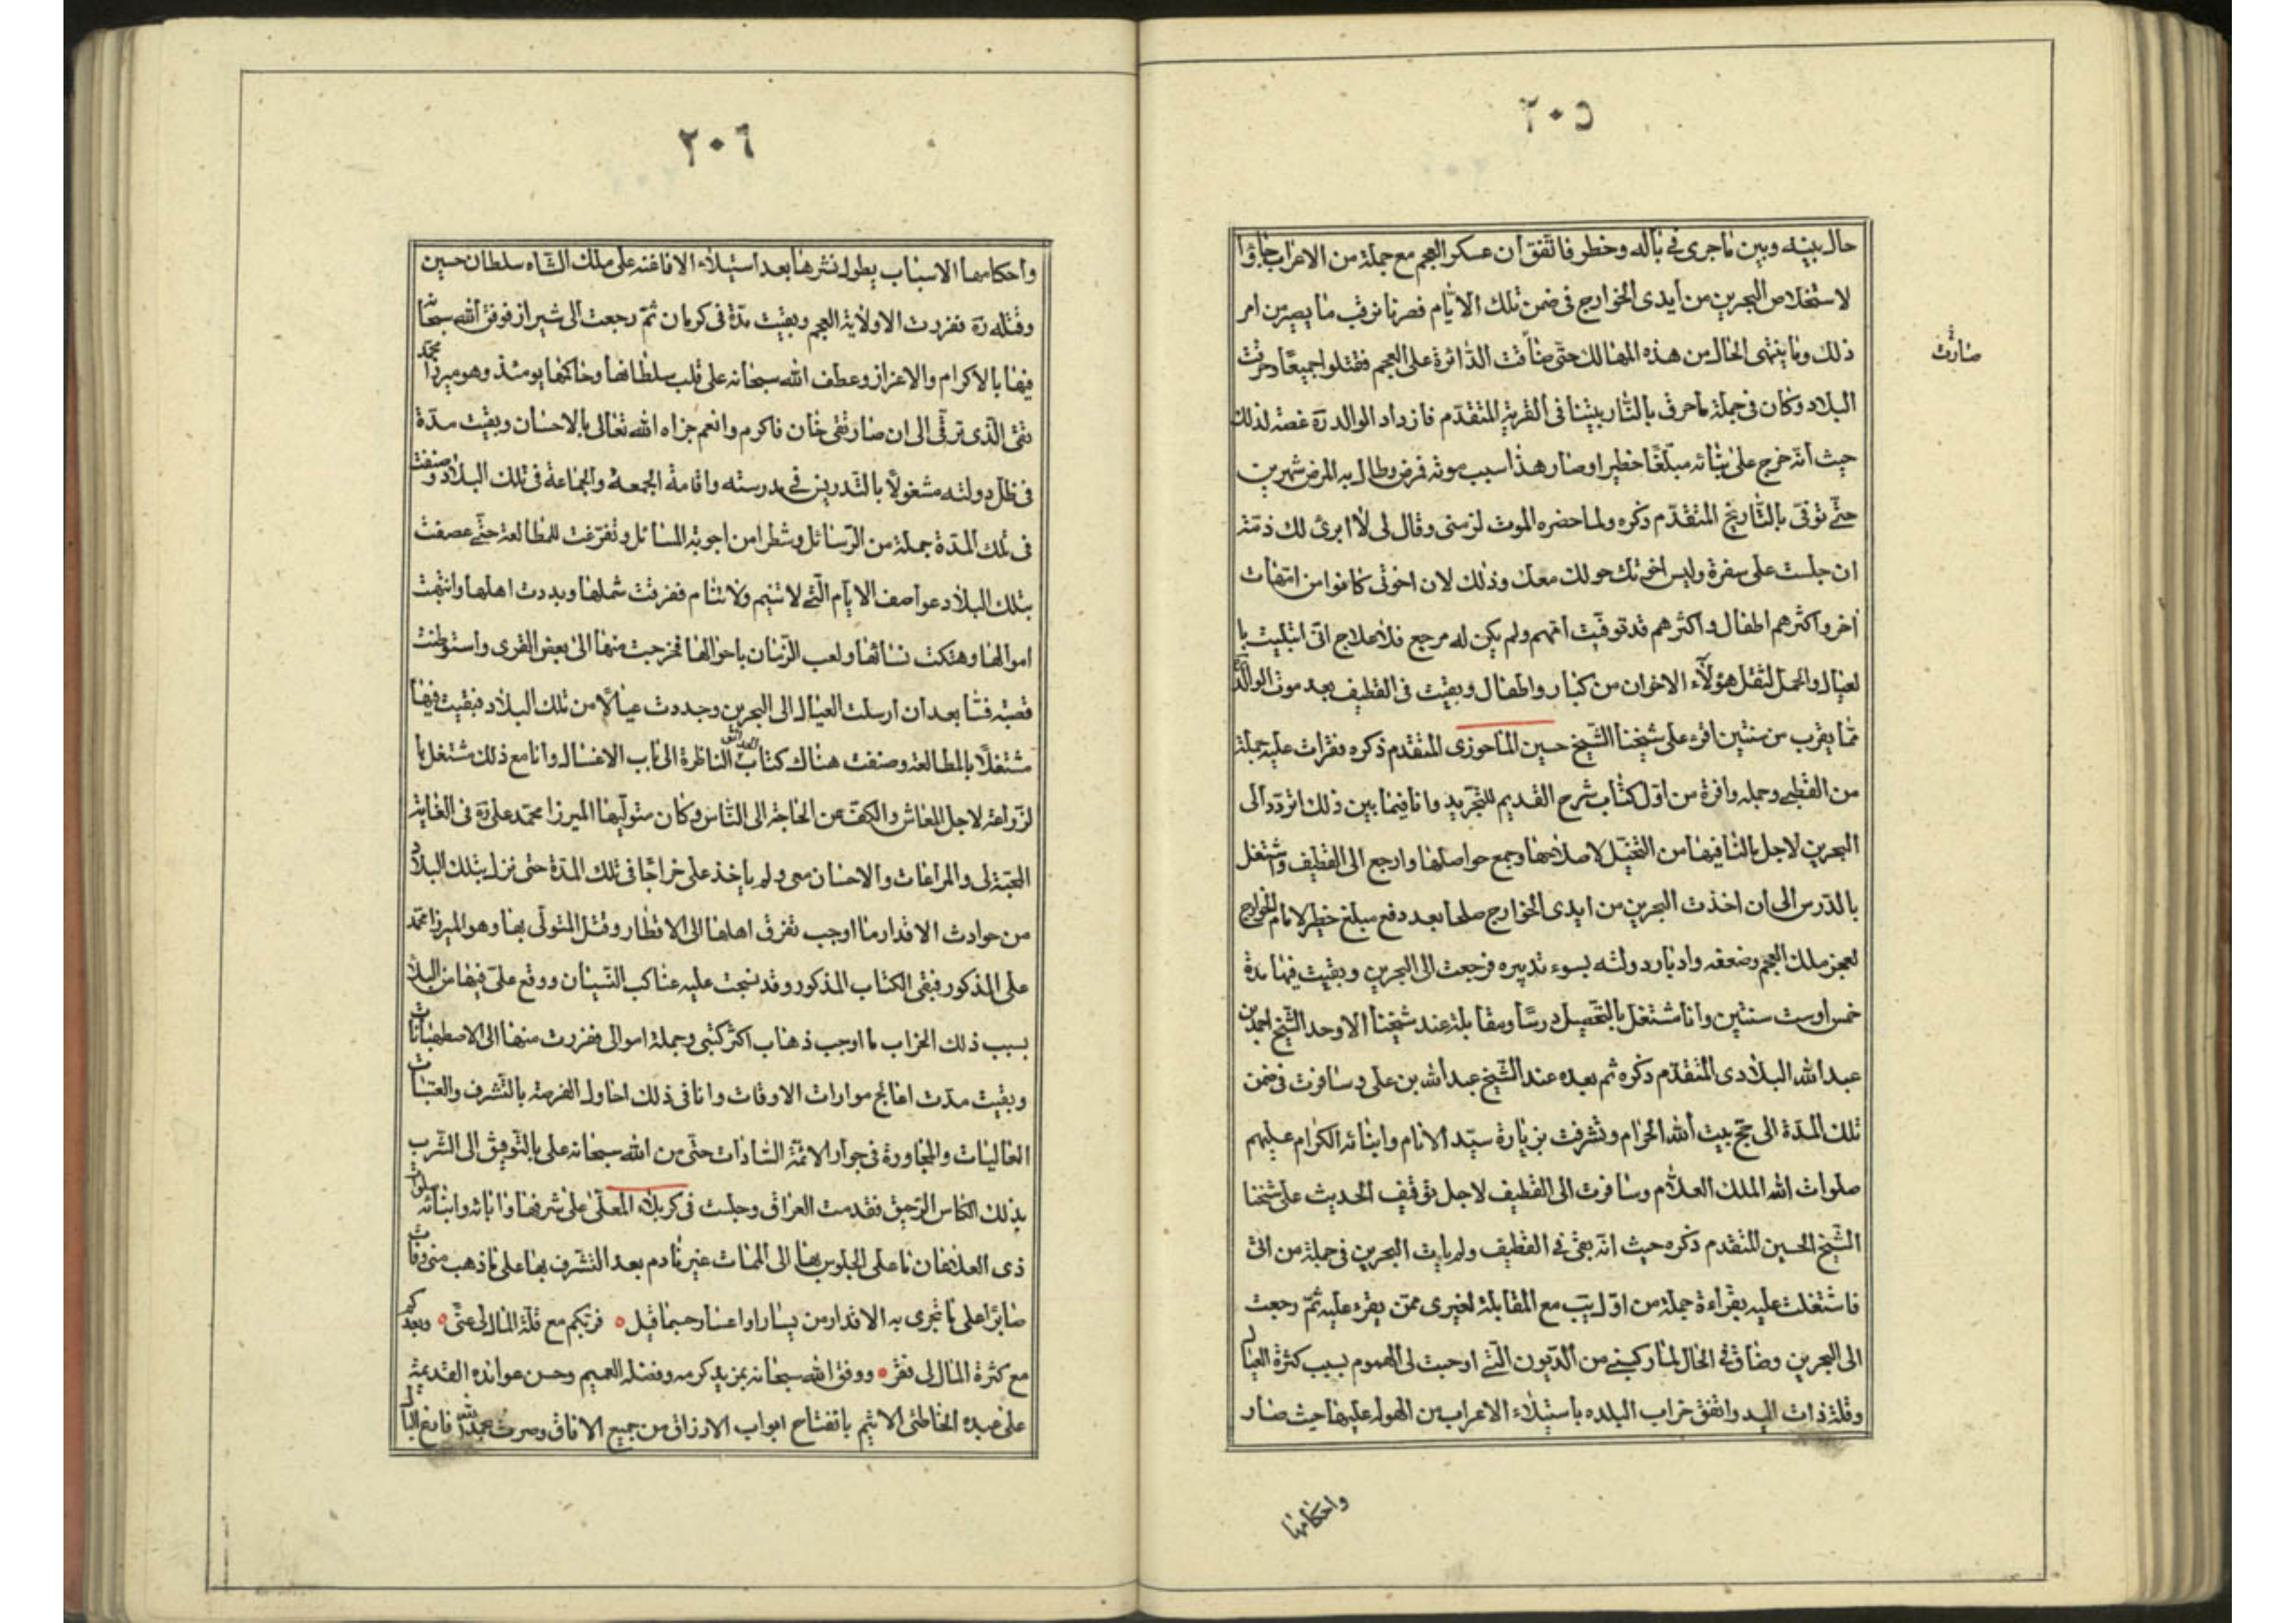 ٢٠٥
حال بينه وبين ما جرى في باله وخطر فاتفق ان عسكر العجم مع جملة من الاعراب جاؤا
لاستخلاص البحرين من أيدى الخوارج فى ضمن تلك الايام فصرنا نرقب ما يصير من امر
ذلك وما ينتهى الحال من هذه المهالك حتى صارت الدائرة على العجم فقتلوا جميعا وحرقت
صارت
البلاد وكان فى جملة ما حرق بالنار بيتنا فى القرية المتقدم فازداد الوالد ره غصة لذلك
حيث انه خرج على بنائه مبلغا خطيرا وصار هذا سبب موته فمرض وطال به المرض شهرين
حتى توفى بالتاريخ المتقدم ذكره ولما حضره الموت لزمنى وقال لى لا ابرئ لك ذمة
ان جلست على سفرة وليس اخوتك حولك معك وذلك لان اخوتى كانوا من امهات
أخر واكثرهم اطفال واكثرهم قد توفيت امهم ولم يكن له مرجع فلا علاج انى ابتليت با
لعيال والحمل لثقل هؤلاء الاخوان من كبار واطفال وبقيت فى القطيف بعد موت الوالد
مما يقرب من سنتين اقرء على شيخنا الشيخ حسين الماحوزى المتقدم ذكره فقرات عليه جملة
من القطبى وجمله وافرة من اول كتاب شرح القديم للتجريد وانا فيما بين ذلك اتردد الى
البحرين لاجل مالنا فيها من النخيل لاصلاحها وجمع حواصلها وارجع الى القطيف واشتغل
بالدرس الى ان اخذت البحرين من ايدى الخوارج صلحا بعد دفع مبلغ خطير لامام الخوارج
لعجز ملك العجم وضعفه وادبار دولته بسوء تدبيره فرجعت الى البحرين وبقيت فيها مدة
خمس او ست سنتين وانا مشتغل بالتحصيل درسا ومقابلة عند شيخنا الاوحد الشيخ احمد بن
عبدالله البلادى المتقدم ذكره ثم بعده عند الشيخ عبدالله بن على وسافرت فى ضمن
تلك المدة الى حج بيت الله الحرام وتشرفت بزيارة سيد الانام وابنائه الكرام عليهم
صلوات الله الملك العلام وسافرت الى القطيف لاجل توقيف الحديث على شيخنا
الشيخ الحسين المتقدم ذكره حيث انه بقى فى القطيف ولم يات البحرين فى جملة من اتى
فاشتغلت عليه بقراءة جملة من اول يب مع المقابلة لغيرى ممن يقرء عليه ثم رجعت
الى البحرين وضاق فى الحال لما ركبنى من الديون التى اوجبت لى الهموم بسبب كثرة العيال
وقلة ذات اليد واتفق خراب البلده باستيلاء الاعراب من الهوله عليها حيث صار
واحكامها
٢٠٦
واحكامها الاسباب يطول نشرها بعد استيلاء الافاغنه على ملك الشاه سلطان حسين
وقتله ره ففررت الا ولاية العجم وبقيت مدة فى كرمان ثم رجعت الى شيراز فوفق الله سبحانه
فيها بالاكرام والاعزاز وعطف الله سبحانه على قلب سلطانها وحاكمها يومئذ وهو ميرزا محمد
تقى الذى ترقى الى ان صار تقى خان فاكرم وانعم جزاه الله تعالى بالاحسان وبقيت مدة
فى ظل دولته مشغولا بالتدريس فى مدرسته واقامة الجمعة والجماعة فى تلك البلاد وصنفت
فى تلك المدة جملة من الرسائل وشطرا من اجوبة المسائل وتفرغت للمطالعة حتى عصفت
بتلك البلاد عواصف الايام التى لا تنيم ولا تنام ففرقت شملها وبددت اهلها وانتهبت
اموالها وهتكت نسائها ولعب الزمان باحوالها فخرجت منها الى بعض القرى واستوطنت
قصبة فسا بعد ان ارسلت العيال الى البحرين وجددت عيالا من تلك البلاد فبقيت فيها
مشتغلا بالمطالعة وصنفت هناك كتاب الحدائق الناظرة الى باب الاغسال وانا مع ذلك مشتغل با
لزراعة لاجل المعاش والكف عن الحاجة الى الناس وكان متوليها الميرزا محمد على ره فى الغاية
المحبة لى والمراعات والاحسان معى ولم ياخذ على خراجا فى تلك المدة حتى نزل بتلك البلاد
من حوادث الاقدار ما اوجب تفرق اهلها الى الاقطار وقتل المتولى بها وهو الميرزا محمد
على المذكور فبقى الكتاب المذكور وقد نسجت عليه عناكب النسيان ووقع على فيها من البلاد
بسبب ذلك الخراب ما اوجب ذهاب اكثر كتبى وجملة اموالى ففررت منها الى الاصطهبانات
وبقيت مدت اعالج موارات الاوقات وانا فى ذلك احاول الفرصة بالتشرف والعتبات
العاليات والمجاورة فى جوار الائمة السادات حتى من الله سبحانه على بالتوفيق الى الشرب
بذلك الكاس الرحيق فقدمت العراق وجلست فى كربلاء المعلى على شرفها وابائه وابنائه صلوات
ذى العلا فان ما على الجلوس بها الى الممات غير نادم بعد التشرف بها على ما ذهب منى وفات
صابرا على ما تجرى به الاقدار من يسار او اعسار حسبما قيل ٥ فربكم مع قلة المال لى عنى ٥ وبعدكم
مع كثرة المال لى فقر ٥ ووفق الله سبحانه بمزيد كرمه وفضله العميم وحسن عوائده القديمة
على عبده الخاطئ الاثيم بانفتاح ابواب الارزاق من جميع الافاق وصرت بحمد الله فارغ البال